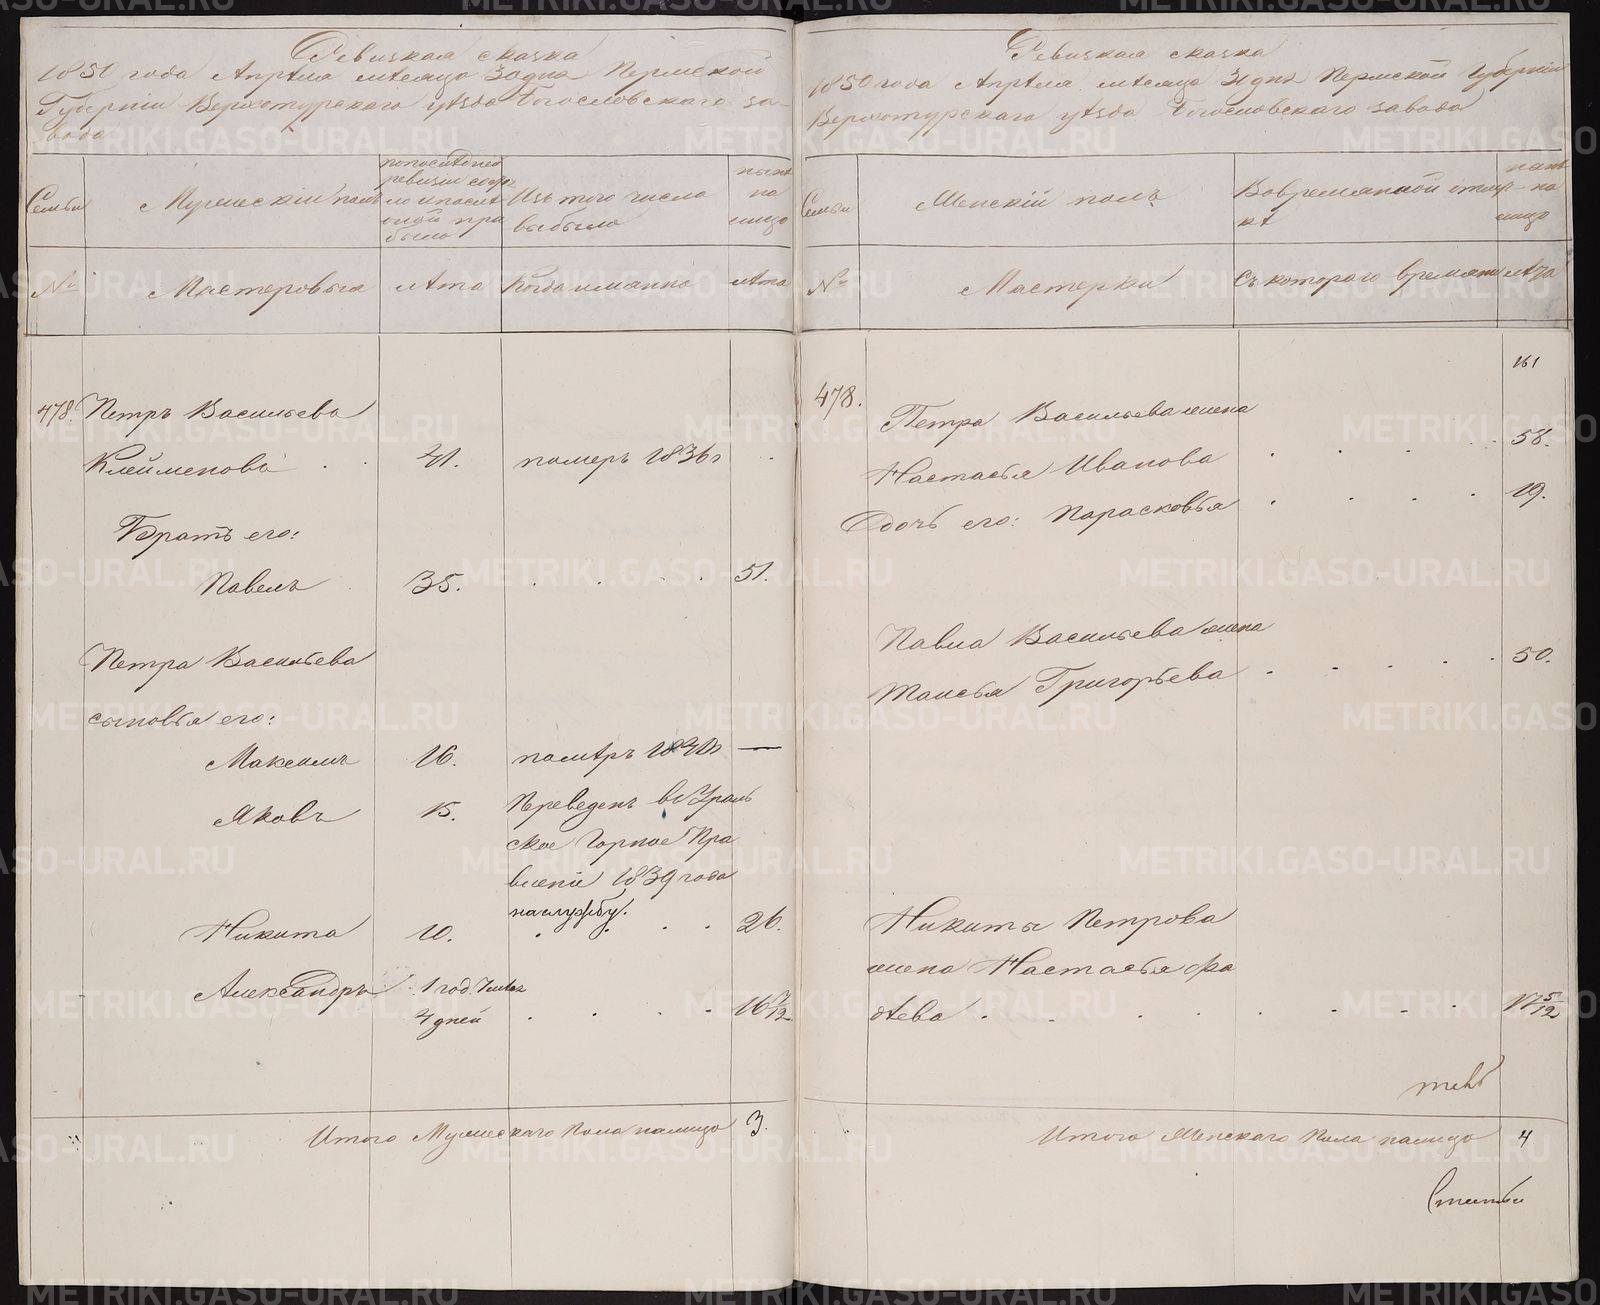 Ревизкая сказка
1850 года Апрѣля мѣсяца 30 дня Пермской
Губерніи Верхотурскаго уѣзда Богословскаго за-
вода
Семьи
Мужескій полъ
по последней
ревизіи со-
и после
оной при
было
Изъ того числа
выбыло
ныне
на
лицо
№
Мастеровыя
Лета
Когда именно
Лета
478. Петръ Васильевъ
Клейменовъ . . 41. померъ 1836 г .
Братъ его:
Павелъ 35. . . . . 51.
Петра Васильева
сыновья его:
Максимъ 16. помѣръ —
Яковъ 15. Переведенъ въ Ураль
ское Горное Пра
вленіе 1839 года
на службу.
Никита 10. . . . . 26.
Александръ 1 год. 7 мѣс
4 дней . . . . 16 7/12
Итого Мужескаго пола налицо 3.
Ревизкая сказка
1850 года Апрѣля мѣсяца 30 дня Пермской Губерніи
Верхотурскаго уѣзда Богословскаго завода
Семьи
Женскій полъ
Во временной отлуч-
кѣ
ныне
на
лицо
№
Мастерки
Съ котораго времяни
Лѣта
161
478.
Петра Васильева жена
Настасья Иванова . . . . . 58.
Дочь его: Парасковья . . . . 19.
Павла Васильева жена
Таисья Григорьева . . . . . 50.
Никиты Петрова
жена Настасья Фа
дѣева . . . . . . . . 17 5/12
Итого Женскаго пола налицо 4
METRIKI.GASO-URAL.RU